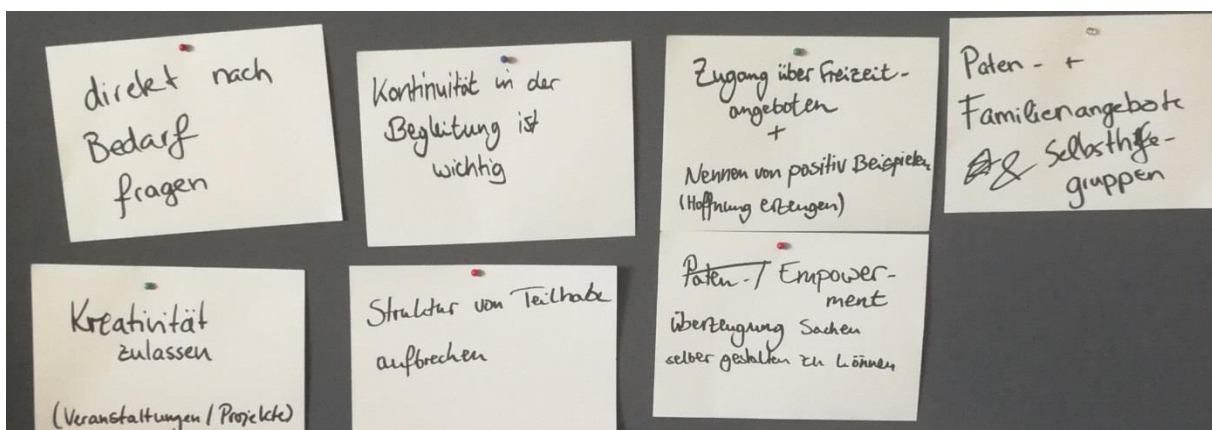 direkt nach
Bedarf
fragen
Kontinuität in der
Begleitung ist
wichtig
Zugang über Freizeit-
angeboten
+
Nennen von positiv Beispielen
(Hoffnung erzeugen)
Paten- +
Familienangebote
& Selbsthilfe-
gruppen
Kreativität
zulassen
(Veranstaltungen / Projekte)
Struktur von Teilhabe
aufbrechen
Paten- / Empower-
ment
überzeugung Sachen
selber gestalten zu können